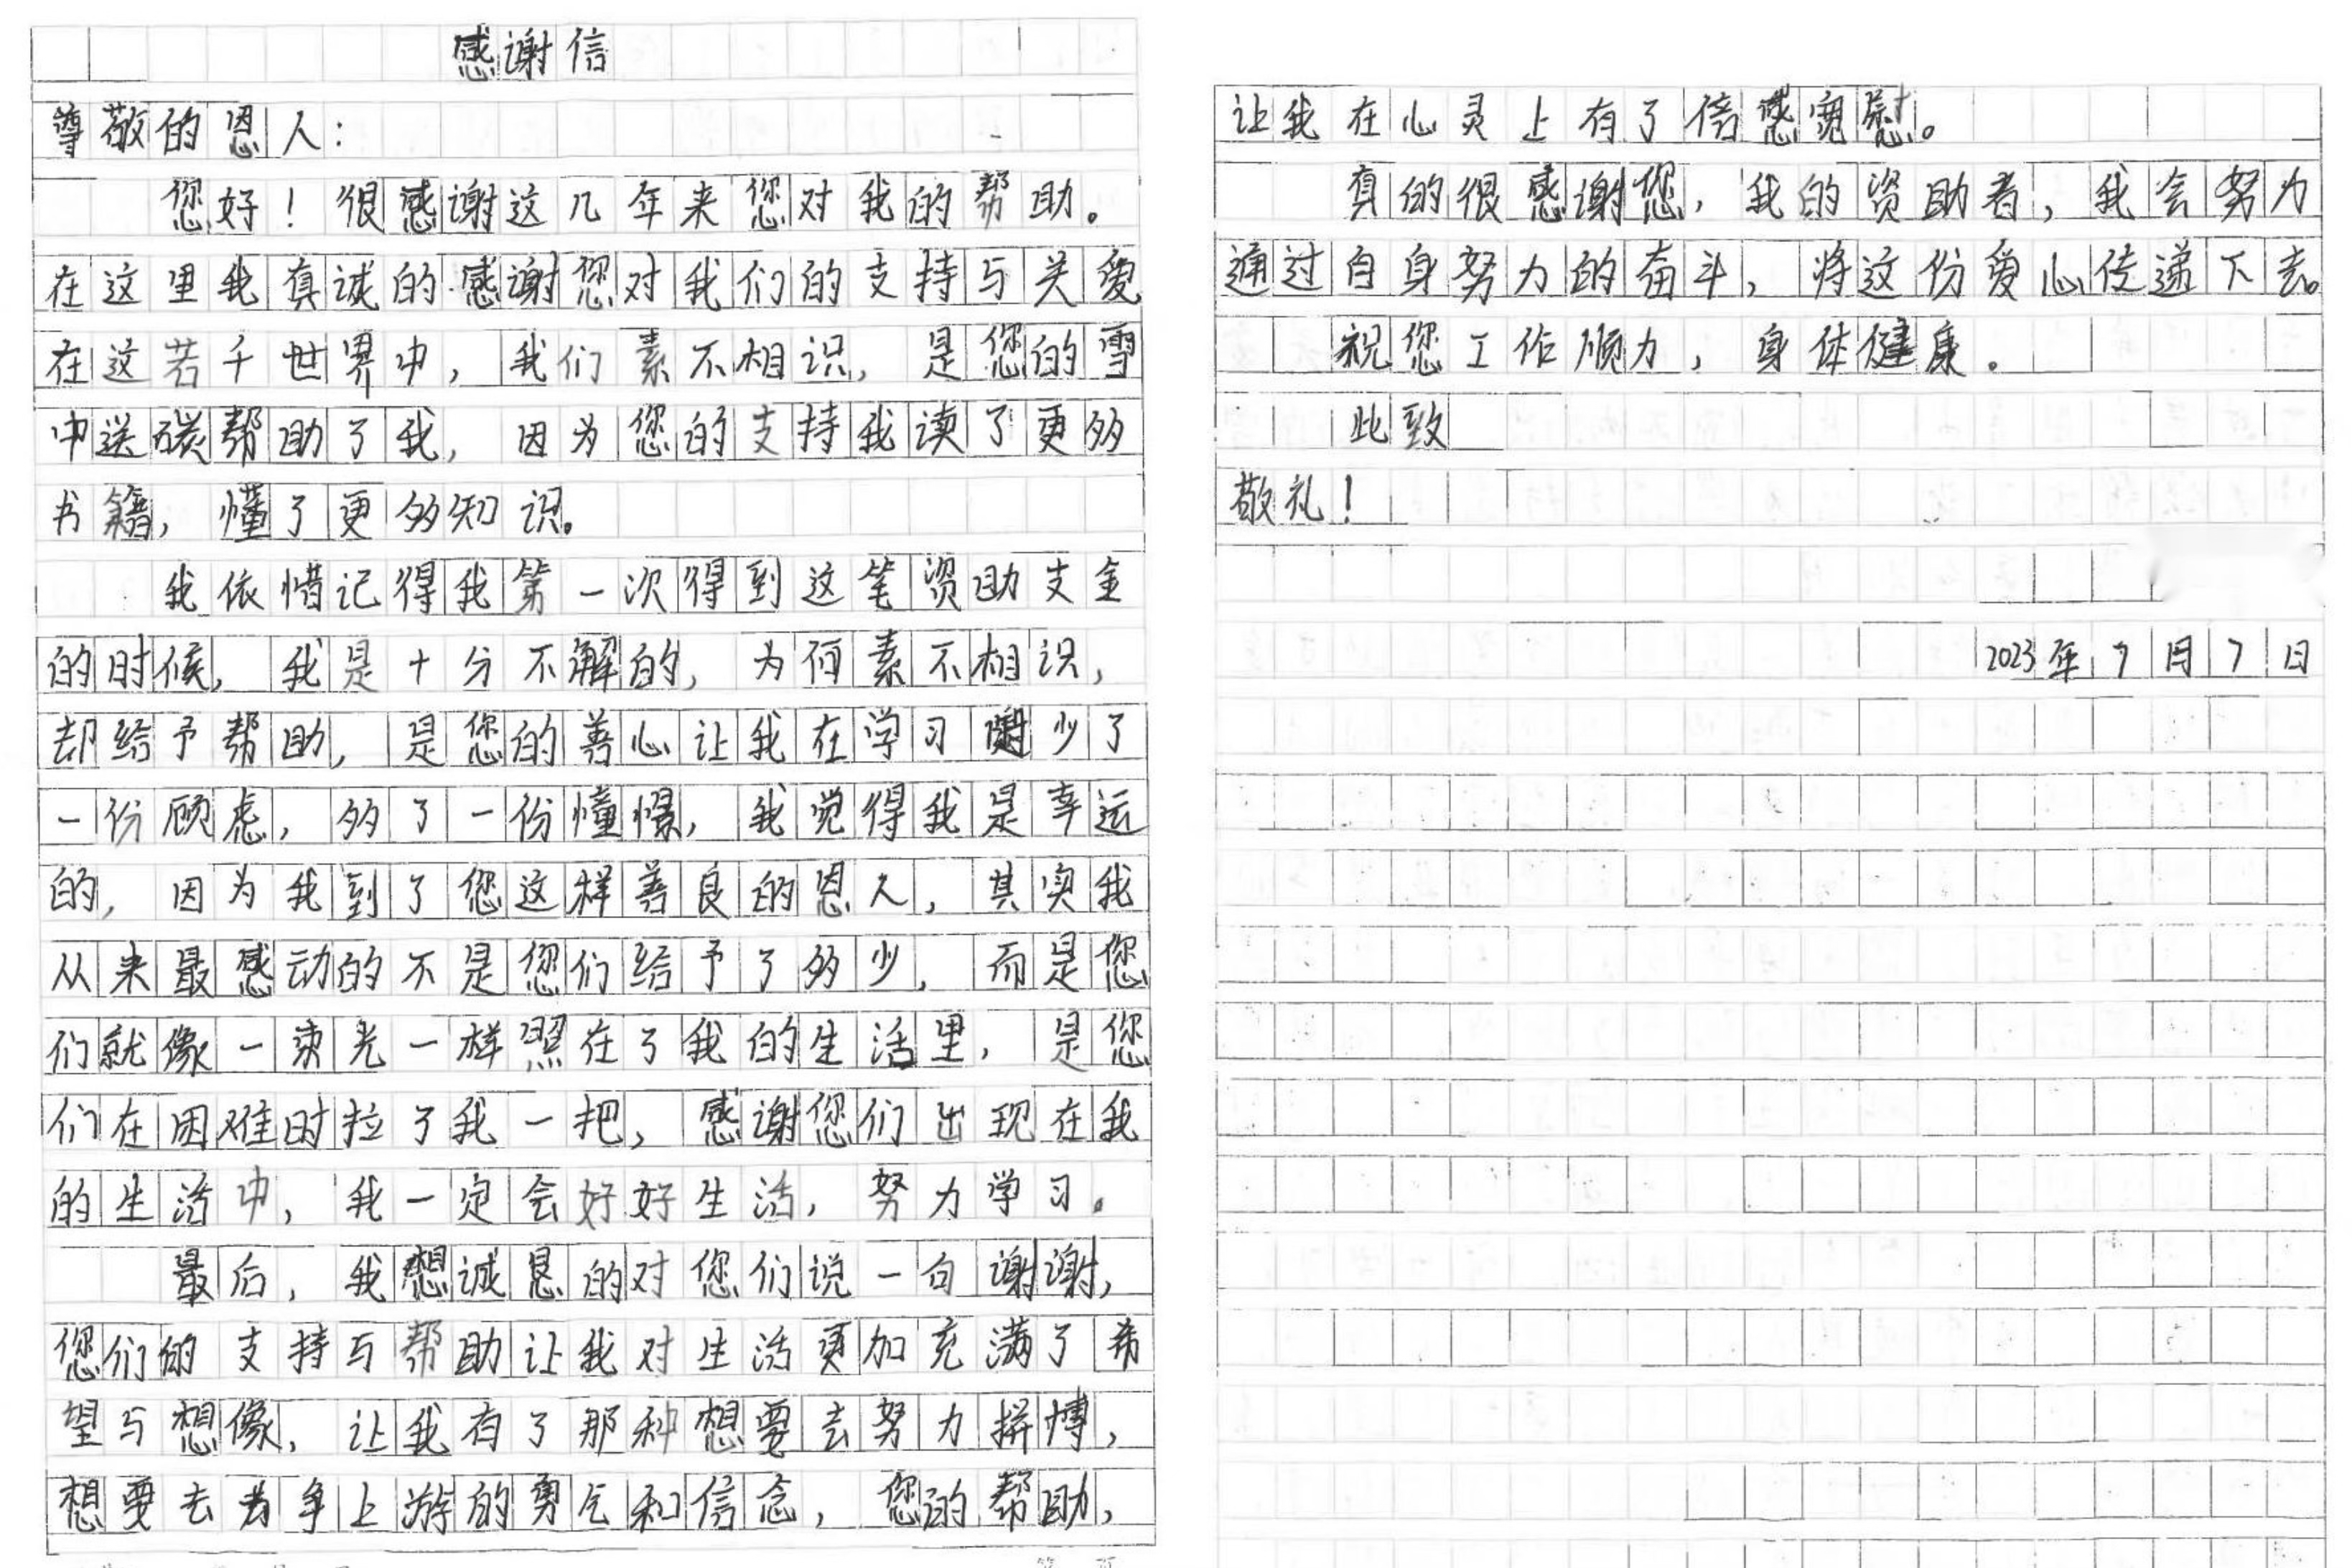 感谢信
尊敬的恩人：
您好！很感谢这几年来您对我的帮助。
在这里我真诚的感谢您对我们的支持与关爱
在这若千世界中，我们素不相识，是您的雪
中送碳帮助了我，因为您的支持我读了更多
书籍，懂了更多知识。
我依惜记得我第一次得到这笔资助支金
的时候，我是十分不解的，为何素不相识，
却给予帮助，是您的善心让我在学习少了
一份顾虑，多了一份憧憬，我觉得我是幸运
的，因为我到了您这样善良的恩人，其实我
从来最感动的不是您们给予了多少，而是您
们就像一束光一样照在了我的生活里，是您
们在困难时拉了我一把，感谢您们出现在我
的生活中，我一定会好好生活，努力学习。
最后，我想诚恳的对您们说一句谢谢，
您们的支持与帮助让我对生活更加充满了希
望与想像，让我有了那种想要去努力拼博，
想要去力争上游的勇气和信念，您的帮助，
让我在心灵上有了倍感宽慰。
真的很感谢您，我的资助者，我会努力
通过自身努力的奋斗，将这份爱心传递下去。
祝您工作顺力，身体健康。
此致
敬礼！
2023年7月7日